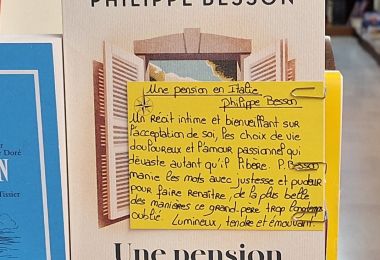 PHILIPPE BESSON
Une pension en Italie
Philippe Besson
Un récit intime et bienveillant sur
l'acceptation de soi, les choix de vie
douloureux et l'amour passionnel qui
dévaste autant qu'il libère. P. Besson
manie les mots avec justesse et pudeur
pour faire renaître, de la plus belle
des manières ce grand-père trop longtemps
oublié. Lumineux, tendre et émouvant.
Une pension
Doré
N
Tissier